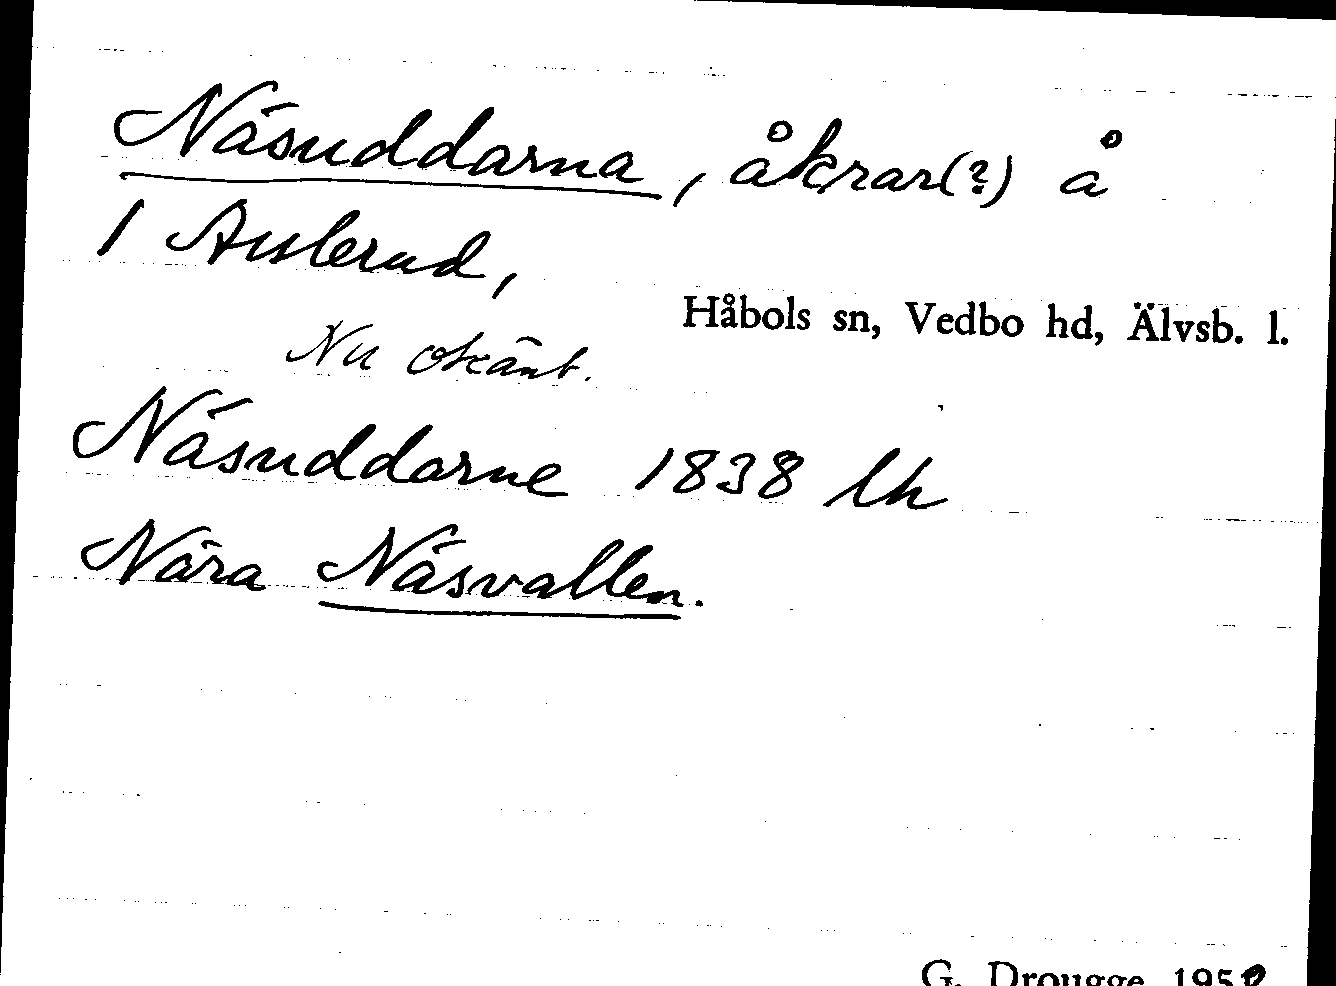 Näsuddarna, åkrar(?) å
1 Asslerud,
Håbols sn, Vedbo hd, Älvsb. l.
Nu okänt.
Näsuddarne 1838 lh
Nära Näsvallen.
G. Drougge 195